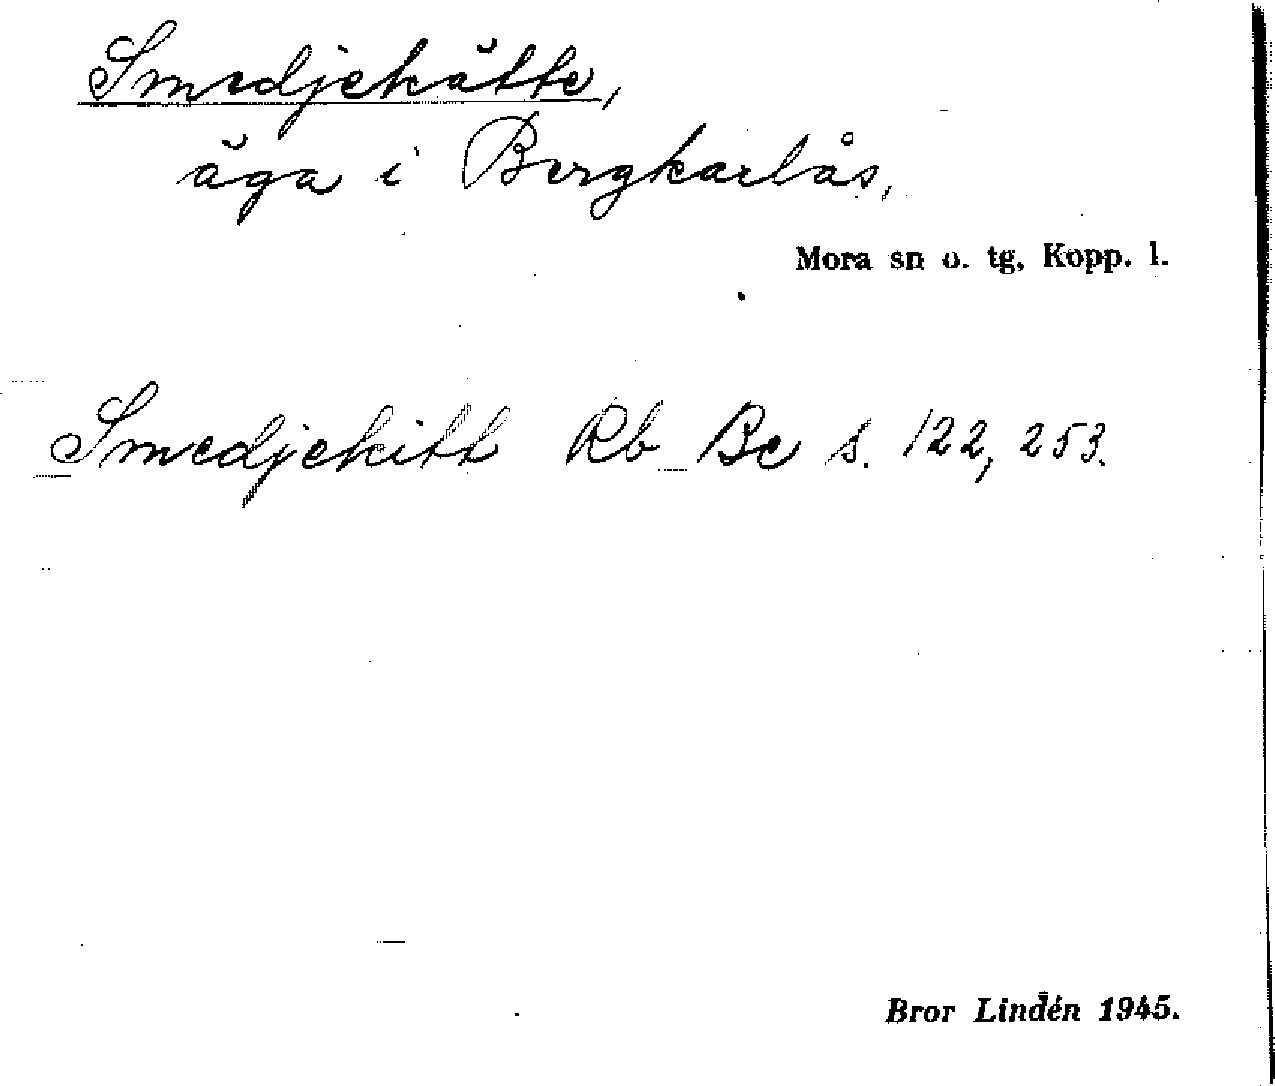 Smedjekätte,
äga i Bergkarlås,
Mora sn o. tg, Kopp. l.
Smedjekitt Rb Bc s. 122, 253.
Bror Lindén 1945.